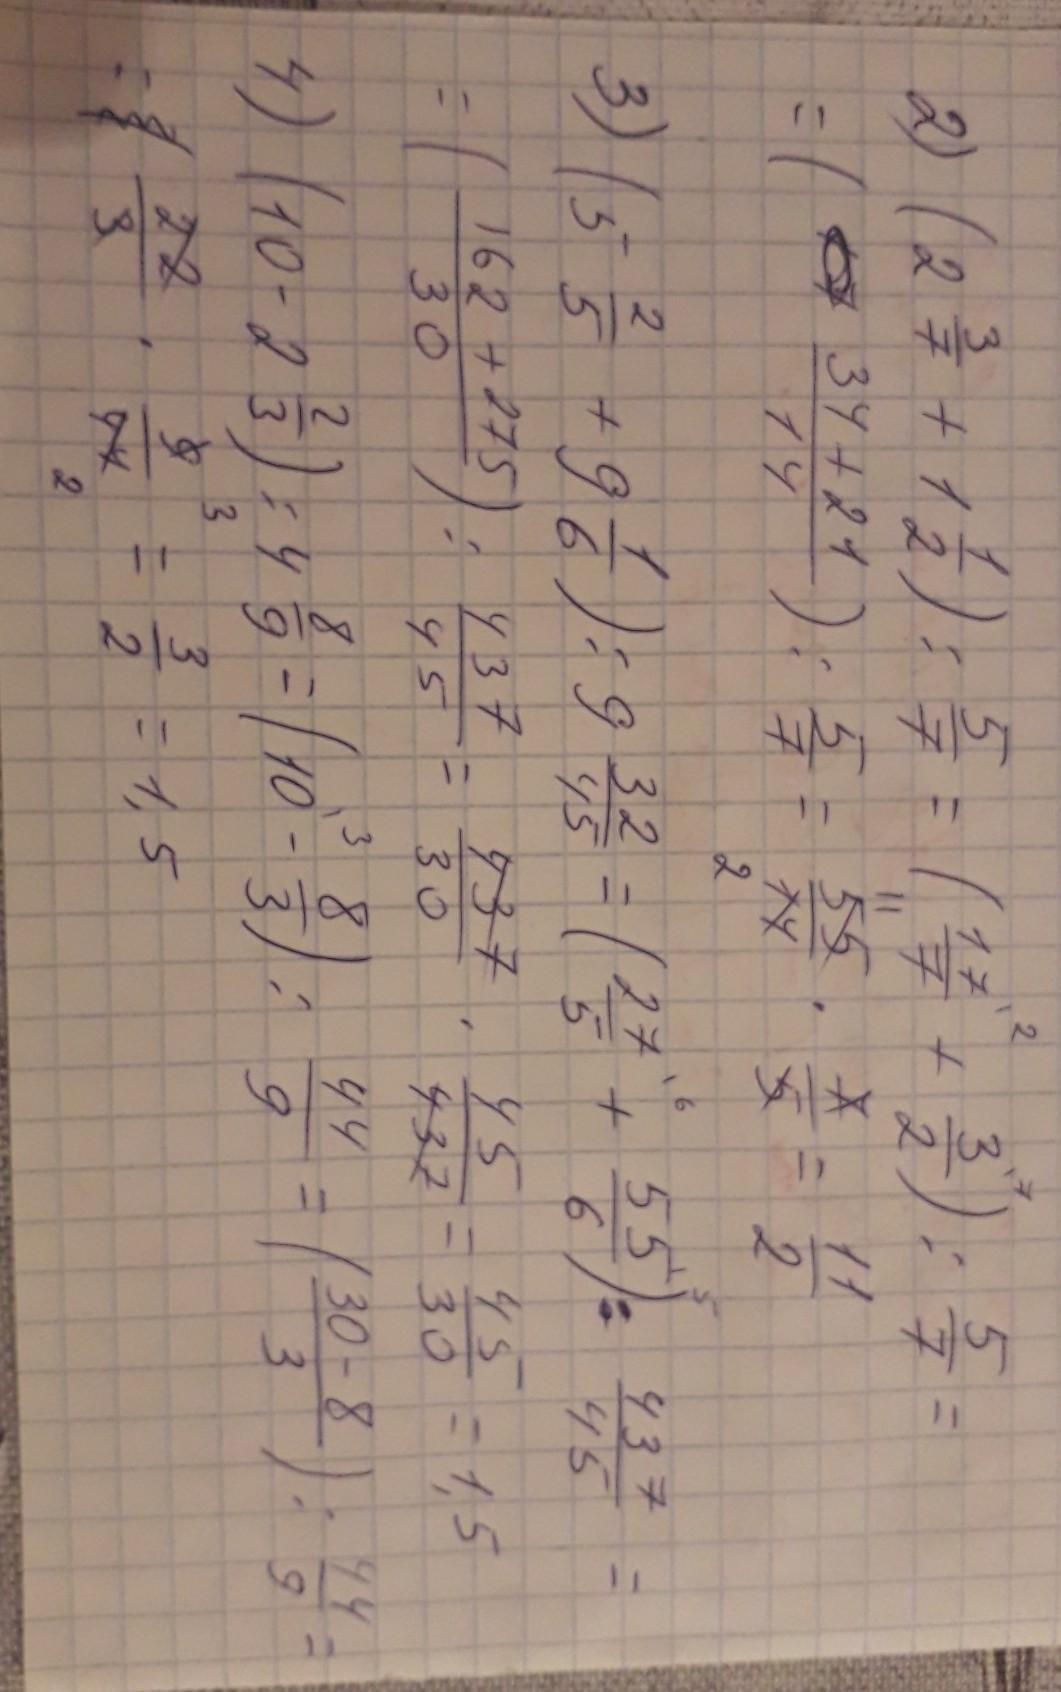 2) (2 3/7 + 1 1/2) : 5/7 = (17/7 ·2 + 3/2 ·7) : 5/7 =
= (34 + 21 / 14) : 5/7 = 55/14 · 7/5 = 11/2
11
2
3) (5 2/5 + 9 1/6) : 9 32/45 = (27/5 ·6 + 55/6 ·5) : 437/45 =
= (162 + 275 / 30) : 437/45 = 437/30 · 45/437 = 45/30 = 1,5
4) (10 - 2 2/3) : 4 8/9 = (10 ·3 - 8/3) : 44/9 = (30 - 8 / 3) : 44/9 =
= 22/3 · 9/44 = 3/2 = 1,5
3
2